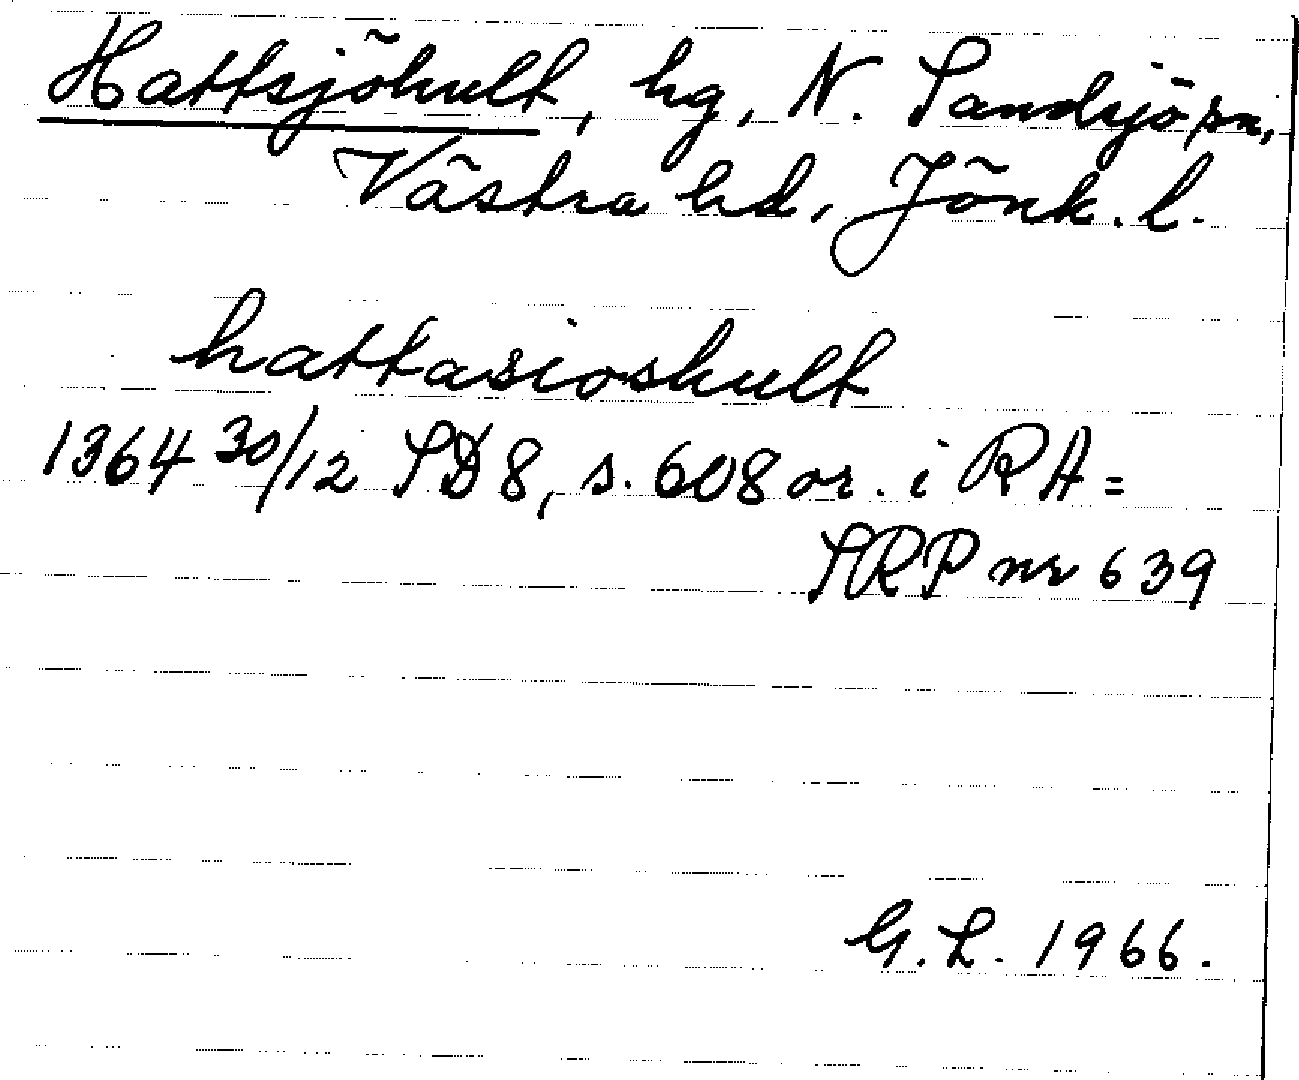 Hattsjöhult, hg, N. Sandsjö sn,
Västra hd, Jönk. l.
hattasioshult
1364 30/12 SD 8, s. 608 or. i RA =
SRP nr 639
G. L. 1966.